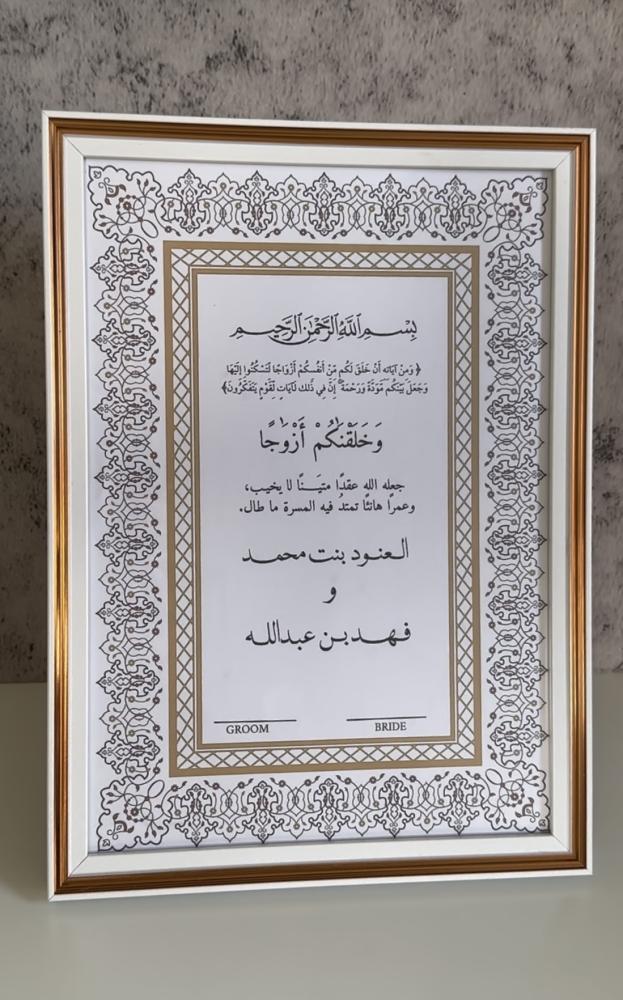 بِسْمِ اللَّهِ الرَّحْمَٰنِ الرَّحِيمِ
﴿ وَمِنْ آيَاتِهِ أَنْ خَلَقَ لَكُم مِّنْ أَنفُسِكُمْ أَزْوَاجًا لِّتَسْكُنُوا إِلَيْهَا
وَجَعَلَ بَيْنَكُم مَّوَدَّةً وَرَحْمَةً ۚ إِنَّ فِي ذَٰلِكَ لَآيَاتٍ لِّقَوْمٍ يَتَفَكَّرُونَ﴾
وَخَلَقْنَٰكُمْ أَزْوَٰجًا
جعله الله عقدًا متيَـــنًا لا يخيب،
وعمرًا هانئًا تمتدُ فيه المسرة ما طال.
العنود بنت محمد
و
فهد بن عبدالله
GROOM BRIDE